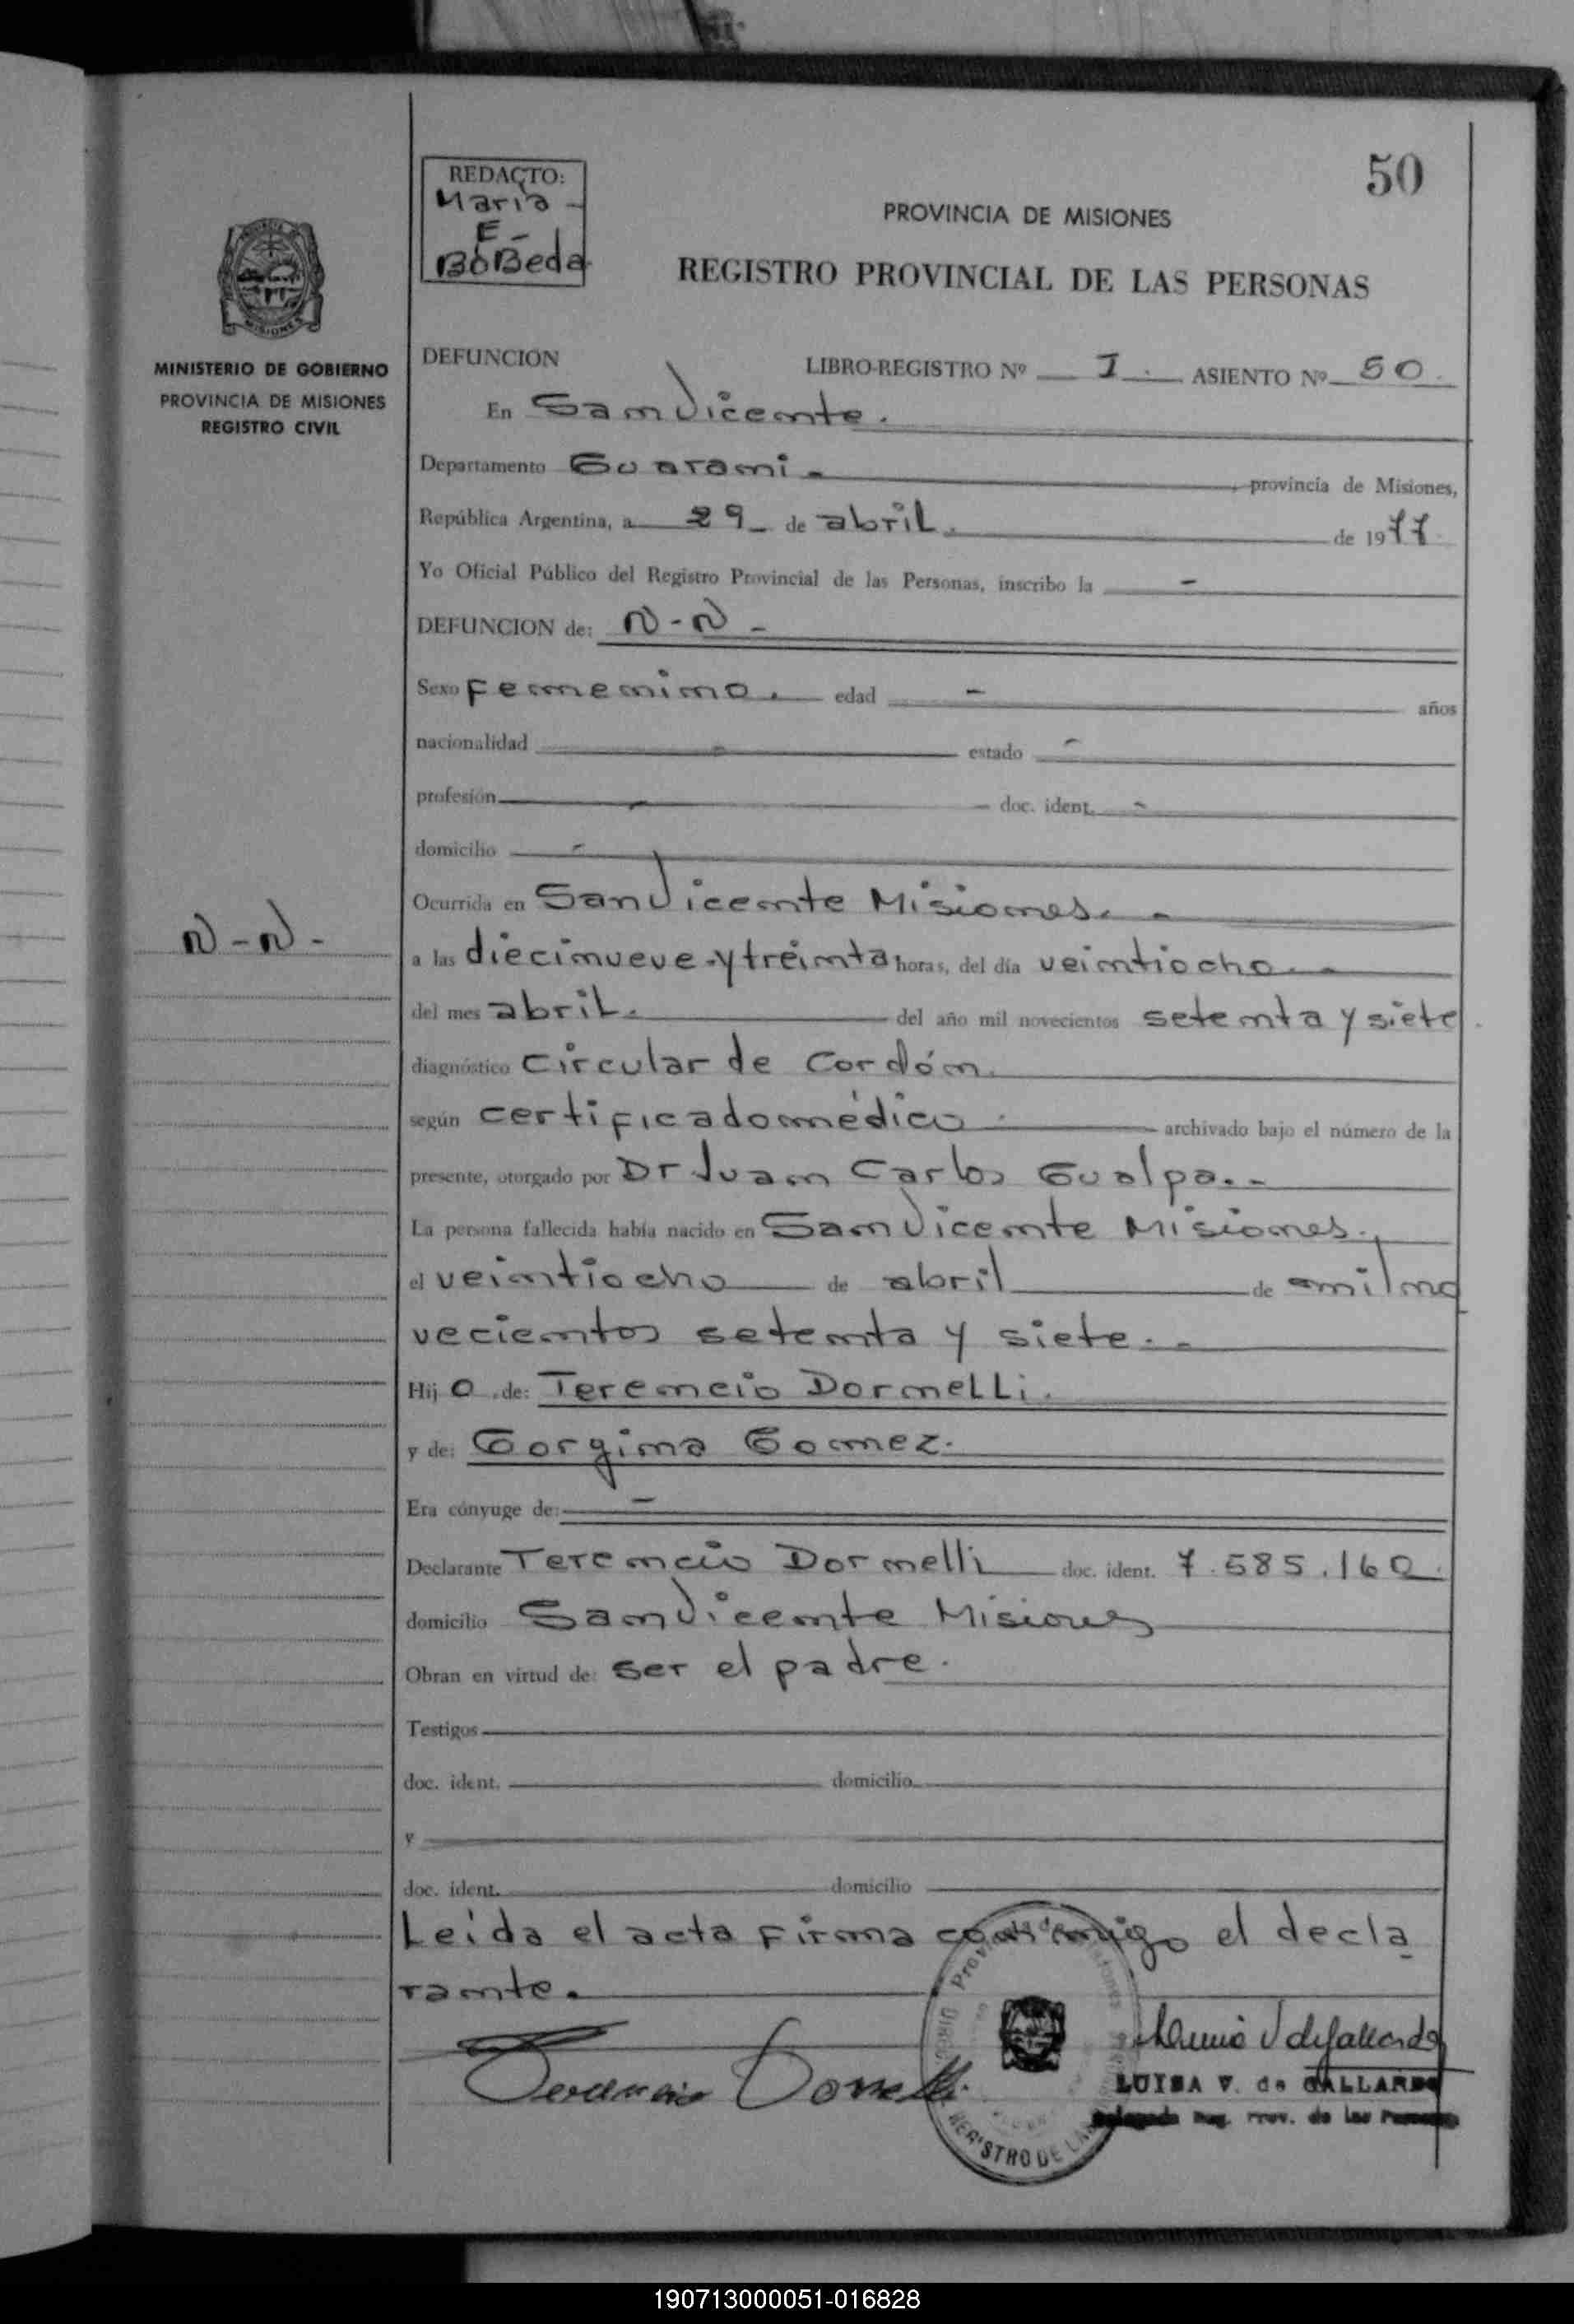 50
REDACTO:
Maria -
E -
BoBeda
PROVINCIA DE MISIONES
REGISTRO PROVINCIAL DE LAS PERSONAS
MINISTERIO DE GOBIERNO
PROVINCIA DE MISIONES
REGISTRO CIVIL
DEFUNCION LIBRO-REGISTRO Nº 1. ASIENTO Nº 50.
En San Vicente.
Departamento Guarani - provincia de Misiones,
República Argentina, a 29 - de abril. de 1977
Yo Oficial Público del Registro Provincial de las Personas, inscribo la -
DEFUNCION de: N-N -
Sexo Femenino. edad - años
nacionalidad - estado -
profesión - doc. ident. -
domicilio -
Ocurrida en San Vicente Misiones. -
N-N-
a las diecinueve y treinta horas, del día veintiocho. -
del mes abril. del año mil novecientos setenta y siete
diagnóstico Circular de Cordón.
según certificado médico - archivado bajo el número de la
presente, otorgado por Dr Juan Carlos Gualpa. -
La persona fallecida había nacido en San Vicente Misiones.
el veintiocho de abril de mil no
vecientos setenta y siete. -
Hij o de: Terencio Dornelli.
y de: Gorgina Gomez.
Era cónyuge de: -
Declarante Terencio Dornelli doc. ident. 7.585.160.
domicilio San Vicente Misiones
Obran en virtud de: ser el padre.
Testigos
doc. ident. domicilio
y
doc. ident. domicilio
Leida el acta Firma conmigo el decla
rante.
Terencio Dornelli
LUISA V. de GALLARDO
Delegada Reg. Prov. de las Personas
REGISTRO DE LAS
190713000051-016828